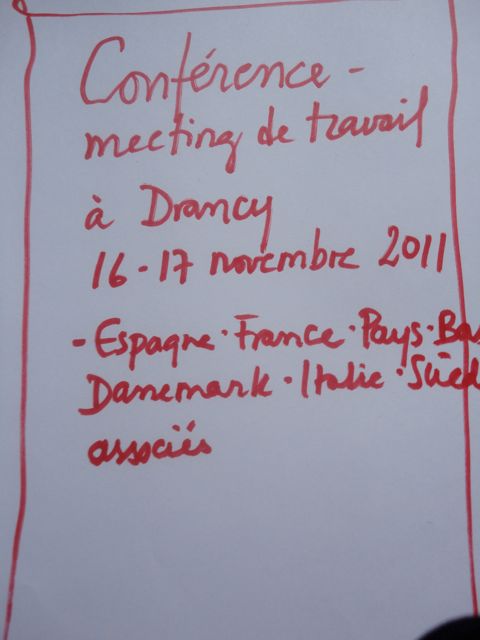 Conférence -
meeting de travail
à Drancy
16-17 novembre 2011
- Espagne · France · Pays · Bas
Danemark · Italie · Suèd
associés